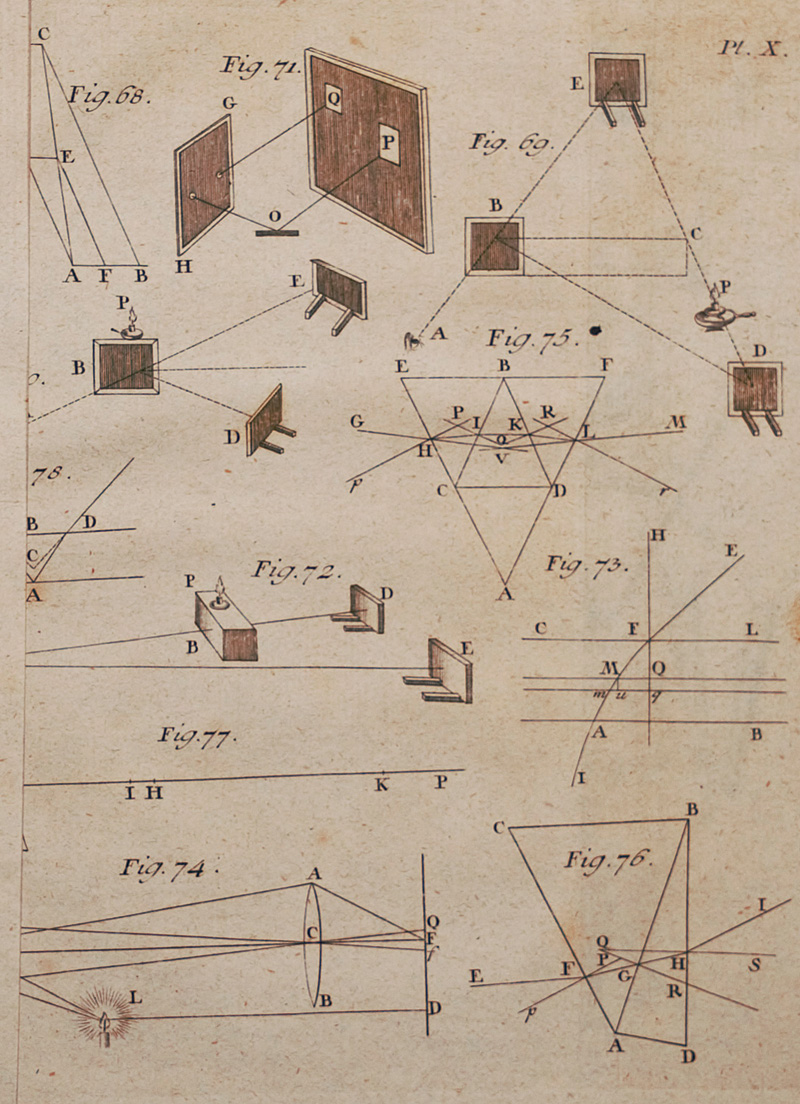 Pt. X.
C
Fig. 68.
E
A F B
Fig. 71.
G
Q
P
O
H
Fig. 69.
E
B
C
P
A
D
P
B
E
D
Fig. 75.
E B F
G P I K R M
H Q L
V
p C D r
A
78.
B D
C
A
Fig. 72.
P
D
B
E
Fig. 73.
H
E
C F L
M Q
m u q
A B
I
Fig. 77.
I H K P
Fig. 74.
A
Q
C F
f
B
L
D
Fig. 76.
C B
I
Q
P
E F G H S
R
p
A D